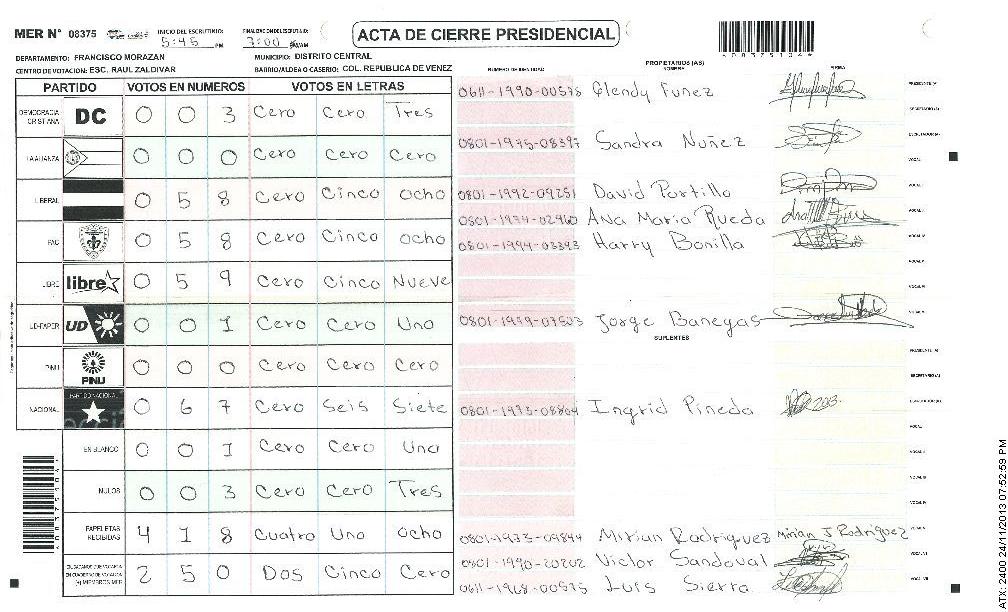 MER N° 08375
INICIO DEL ESCRUTINIO: 5:45 PM
FINALIZACION DEL ESCRUTINIO: 7:00 PM/AM
ACTA DE CIERRE PRESIDENCIAL
DEPARTAMENTO: FRANCISCO MORAZAN
MUNICIPIO: DISTRITO CENTRAL
CENTRO DE VOTACION: ESC. RAUL ZALDIVAR
BARRIO/ALDEA O CASERIO: COL. REPUBLICA DE VENEZ
PARTIDO VOTOS EN NUMEROS VOTOS EN LETRAS
DEMOCRACIA CRISTIANA DC 0 0 3 Cero Cero Tres
LA ALIANZA 0 0 0 Cero Cero Cero
LIBERAL 0 5 8 Cero Cinco Ocho
PAC 0 5 8 Cero Cinco Ocho
LIBRE libre 0 5 9 Cero Cinco Nueve
UD-FAPER UD 0 0 1 Cero Cero Uno
PINU PINU 0 0 0 Cero Cero Cero
NACIONAL PARTIDO NACIONAL 0 6 7 Cero Seis Siete
EN BLANCO 0 0 1 Cero Cero Uno
NULOS 0 0 3 Cero Cero Tres
PAPELETAS RECIBIDAS 4 1 8 Cuatro Uno Ocho
CIUDADANOS QUE VOTARON EN CUADERNO DE VOTACION (+) MIEMBROS MER 2 5 0 Dos Cinco Cero
NUMERO DE IDENTIDAD
PROPIETARIOS (AS)
NOMBRE
FIRMA
Glendy Funez PRESIDENTE (A)
SECRETARIO (A)
Sandra Nuñez ESCRUTADOR (A)
VOCAL I
0801-1992-09251 David Portillo
Ana Maria Rueda
Harry Bonilla
Jorge Banegas
SUPLENTES
PRESIDENTE (A)
SECRETARIO (A)
Ingrid Pineda ESCRUTADOR (A)
Mirian Rodriguez Mirian J Rodriguez
0801-1990-20202 Victor Sandoval
Luis Sierra
ATX-2400 24/11/2013 07:52:59 PM